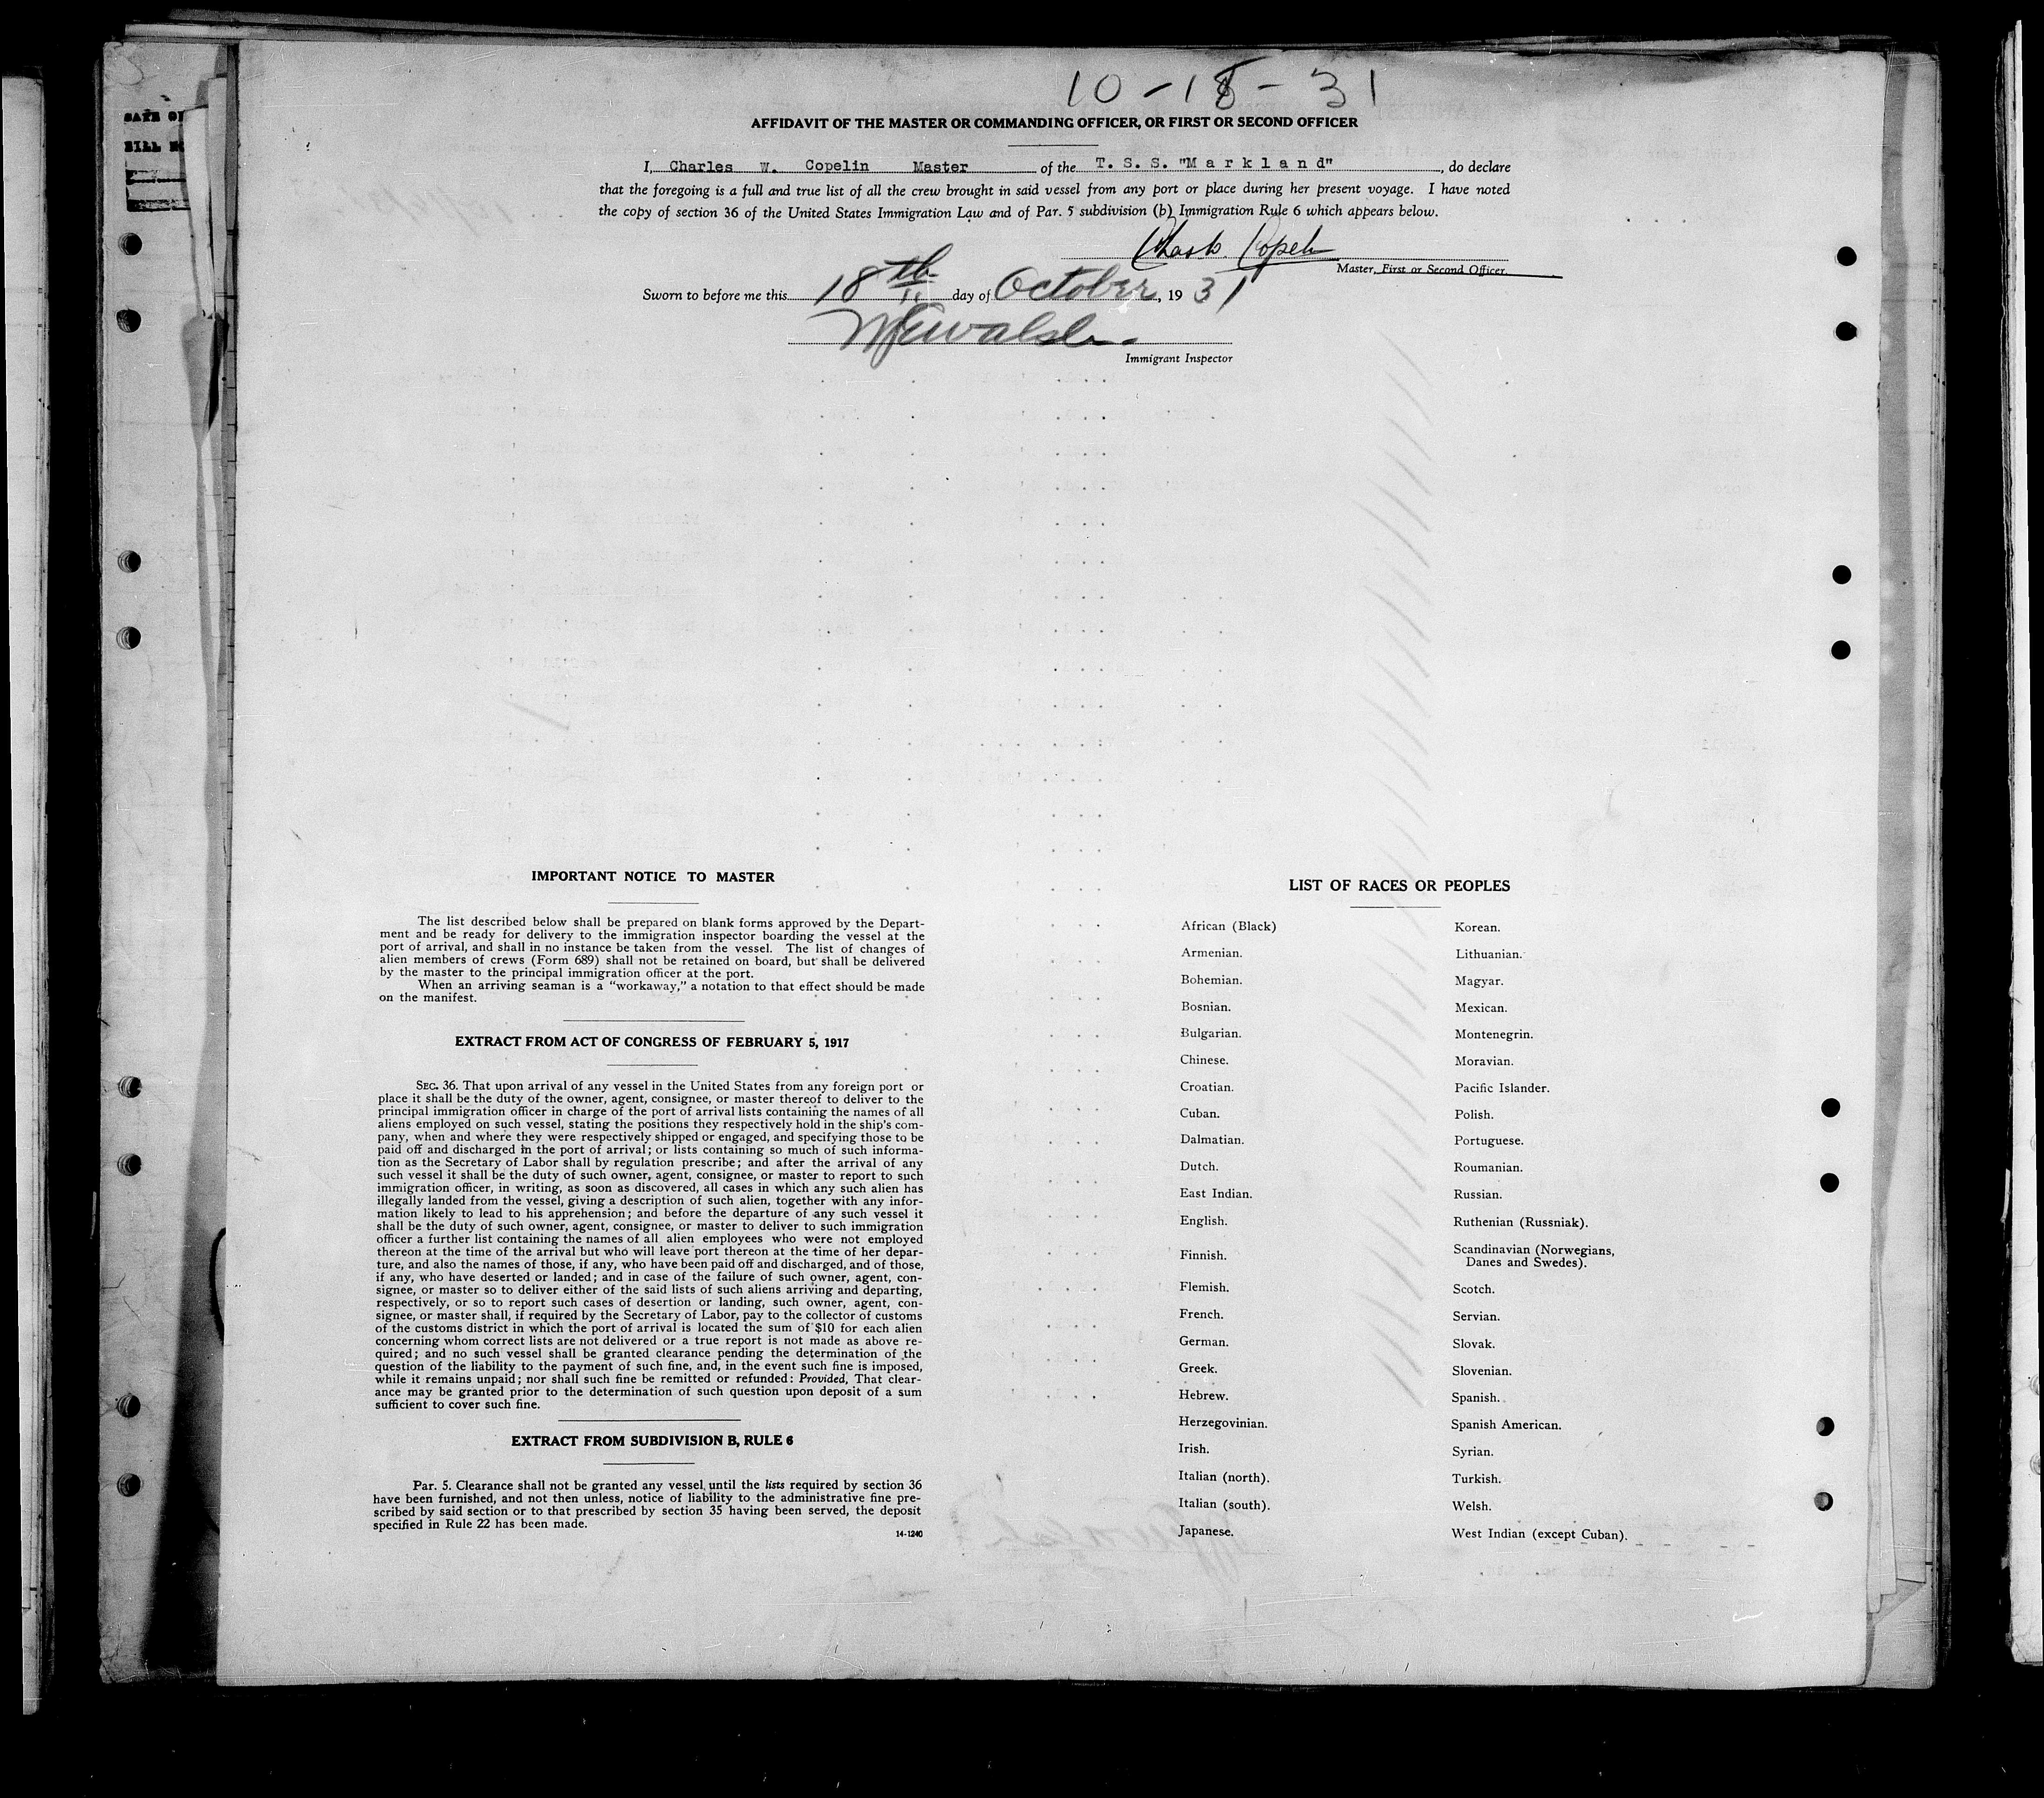 10-18-31
AFFIDAVIT OF THE MASTER OR COMMANDING OFFICER, OR FIRST OR SECOND OFFICER
I, Charles W. Copelin Master of the T. S. S. "M a r k l a n d", do declare
that the foregoing is a full and true list of all the crew brought in said vessel from any port or place during her present voyage. I have noted
the copy of section 36 of the United States Immigration Law and of Par. 5 subdivision (b) Immigration Rule 6 which appears below.
Master, First or Second Officer.
Sworn to before me this 18th day of October, 1931
Immigrant Inspector
IMPORTANT NOTICE TO MASTER
The list described below shall be prepared on blank forms approved by the Depart-
ment and be ready for delivery to the immigration inspector boarding the vessel at the
port of arrival, and shall in no instance be taken from the vessel. The list of changes of
alien members of crews (Form 689) shall not be retained on board, but shall be delivered
by the master to the principal immigration officer at the port.
When an arriving seaman is a "workaway," a notation to that effect should be made
on the manifest.
EXTRACT FROM ACT OF CONGRESS OF FEBRUARY 5, 1917
SEC. 36. That upon arrival of any vessel in the United States from any foreign port or
place it shall be the duty of the owner, agent, consignee, or master thereof to deliver to the
principal immigration officer in charge of the port of arrival lists containing the names of all
aliens employed on such vessel, stating the positions they respectively hold in the ship's com-
pany, when and where they were respectively shipped or engaged, and specifying those to be
paid off and discharged in the port of arrival; or lists containing so much of such informa-
tion as the Secretary of Labor shall by regulation prescribe; and after the arrival of any
such vessel it shall be the duty of such owner, agent, consignee, or master to report to such
immigration officer, in writing, as soon as discovered, all cases in which any such alien has
illegally landed from the vessel, giving a description of such alien, together with any infor-
mation likely to lead to his apprehension; and before the departure of any such vessel it
shall be the duty of such owner, agent, consignee, or master to deliver to such immigration
officer a further list containing the names of all alien employees who were not employed
thereon at the time of the arrival but who will leave port thereon at the time of her depar-
ture, and also the names of those, if any, who have been paid off and discharged, and of those,
if any, who have deserted or landed; and in case of the failure of such owner, agent, con-
signee, or master so to deliver either of the said lists of such aliens arriving and departing,
respectively, or so to report such cases of desertion or landing, such owner, agent, con-
signee, or master shall, if required by the Secretary of Labor, pay to the collector of customs
of the customs district in which the port of arrival is located the sum of $10 for each alien
concerning whom correct lists are not delivered or a true report is not made as above re-
quired; and no such vessel shall be granted clearance pending the determination of the
question of the liability to the payment of such fine, and, in the event such fine is imposed,
while it remains unpaid; nor shall such fine be remitted or refunded: Provided, That clear-
ance may be granted prior to the determination of such question upon deposit of a sum
sufficient to cover such fine.
EXTRACT FROM SUBDIVISION B, RULE 6
Par. 5. Clearance shall not be granted any vessel until the lists required by section 36
have been furnished, and not then unless, notice of liability to the administrative fine pre-
scribed by said section or to that prescribed by section 35 having been served, the deposit
specified in Rule 22 has been made.
14-1240
LIST OF RACES OR PEOPLES
African (Black)
Armenian.
Bohemian.
Bosnian.
Bulgarian.
Chinese.
Croatian.
Cuban.
Dalmatian.
Dutch.
East Indian.
English.
Finnish.
Flemish.
French.
German.
Greek.
Hebrew.
Herzegovinian.
Irish.
Italian (north).
Italian (south).
Japanese.
Korean.
Lithuanian.
Magyar.
Mexican.
Montenegrin.
Moravian.
Pacific Islander.
Polish.
Portuguese.
Roumanian.
Russian.
Ruthenian (Russniak).
Scandinavian (Norwegians,
Danes and Swedes).
Scotch.
Servian.
Slovak.
Slovenian.
Spanish.
Spanish American.
Syrian.
Turkish.
Welsh.
West Indian (except Cuban).